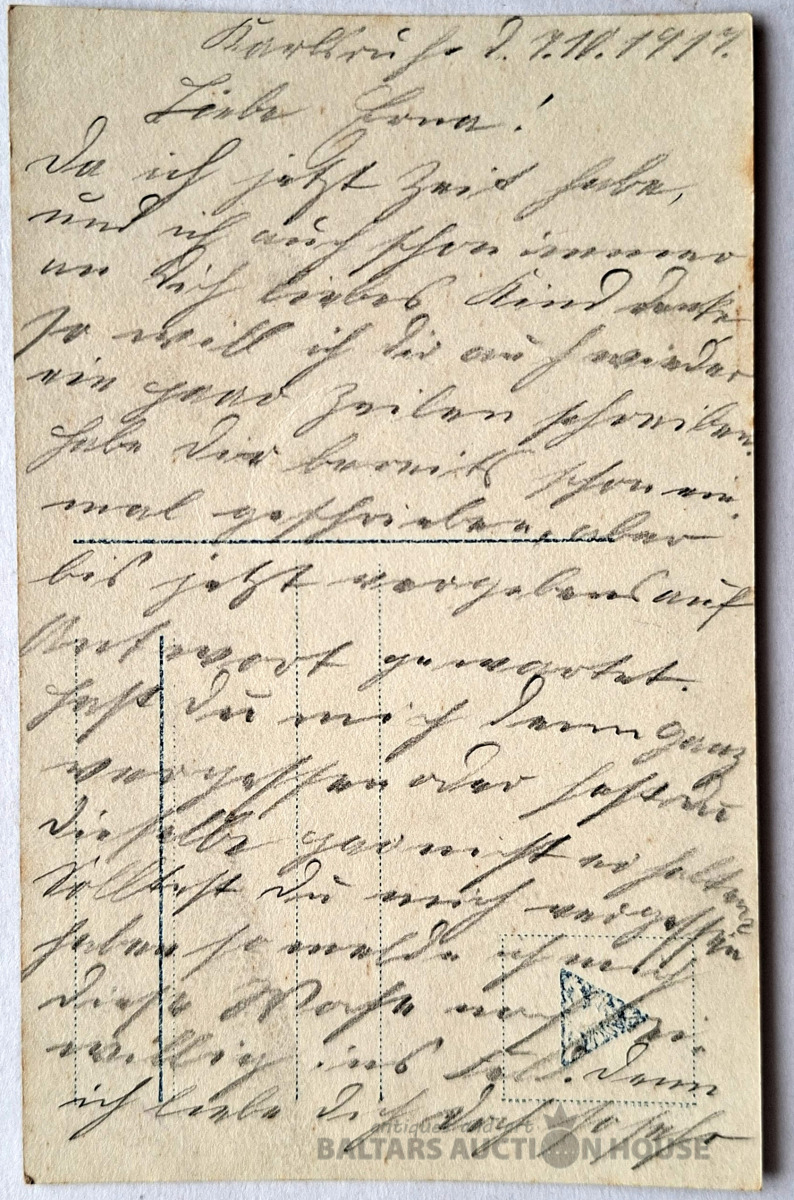 Karlsruhe d. 7.10.1917.
Liebe Erna!
Da ich jetzt Zeit habe,
und ich auch schon immer
an Dich liebes Kind denke
so will ich dir auch wieder
ein paar Zeilen schreiben.
Habe dir bereits schon ein-
mal geschrieben, aber
bis jetzt vergebens auf
Antwort gewartet.
Hast du mich denn ganz
vergessen oder hast du
dieselbe gar nicht erhalten
Solltest du mich vergessen
haben so melde ich mich
diese Woche noch frei-
willig ins Feld. Denn
ich liebe dich doch so sehr
antiques and art
BALTARS AUCTION HOUSE